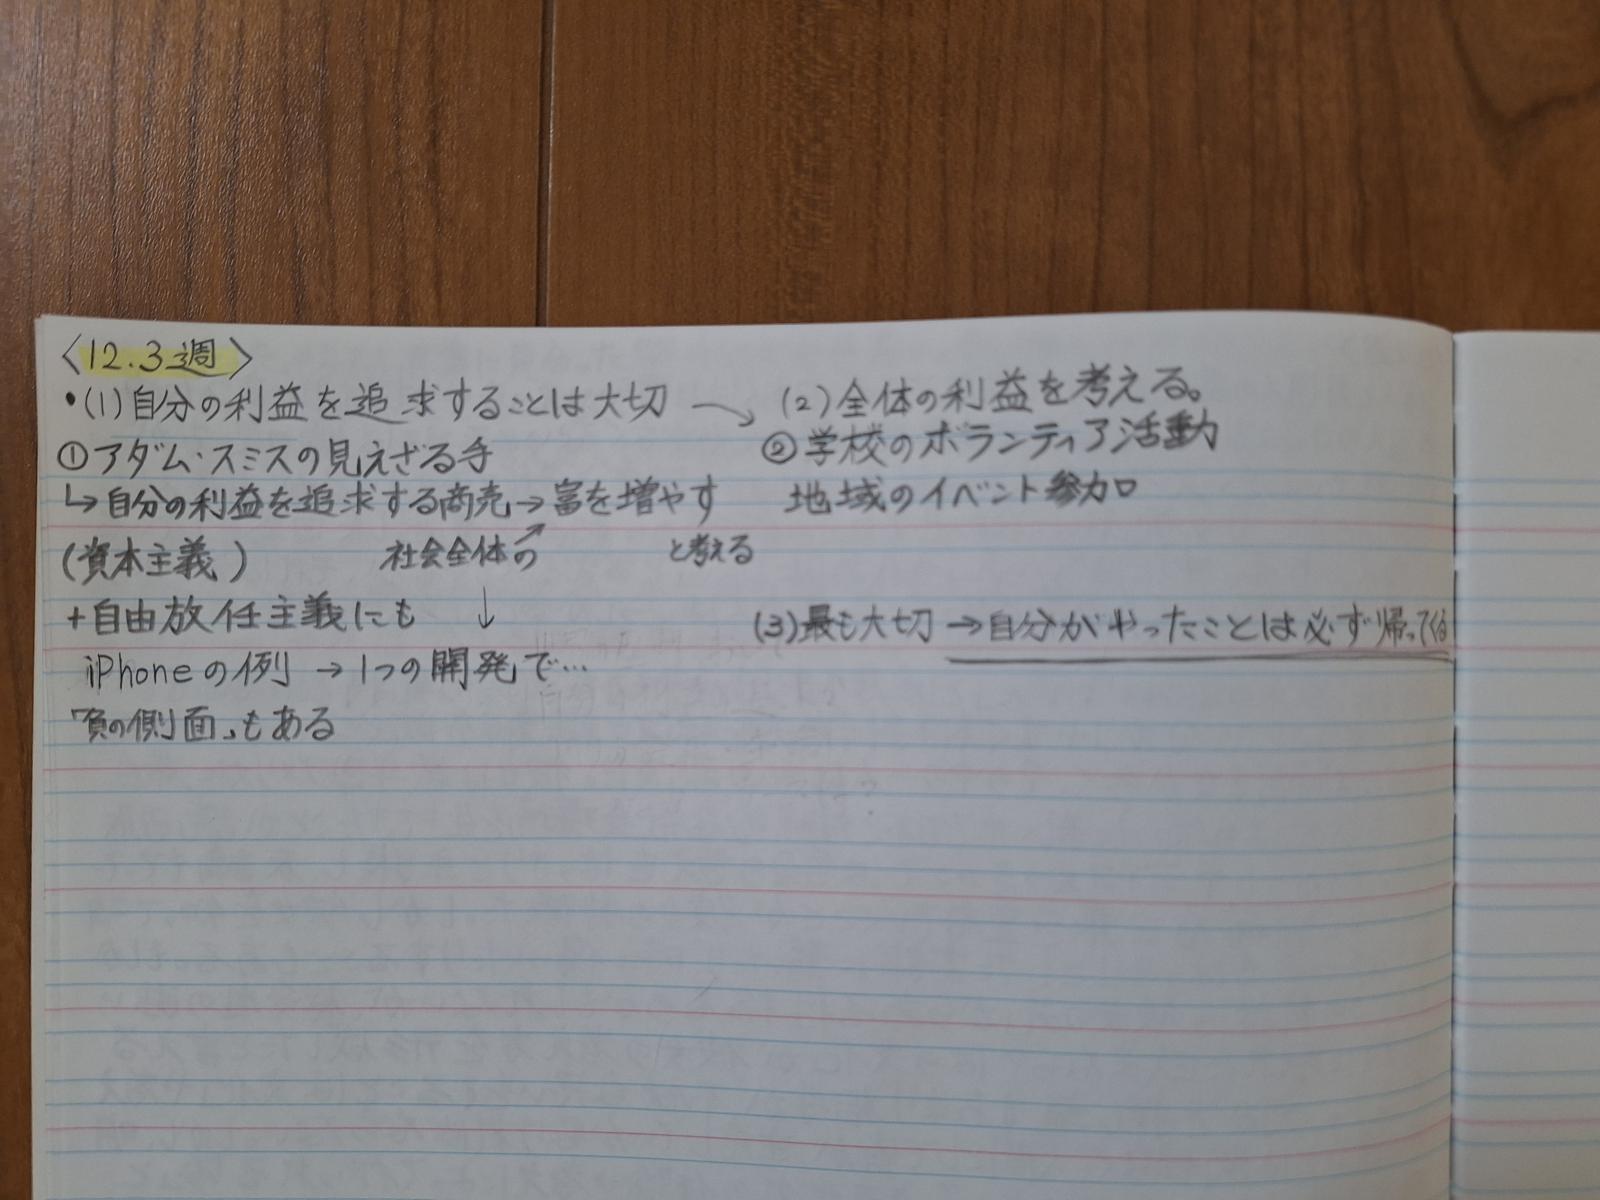 〈12.3週〉
・(1)自分の利益を追求することは大切 →
①アダム・スミスの見えざる手
↳自分の利益を追求する商売→富を増やす
(資本主義) 社会全体の↗ と考える
+自由放任主義にも ↓
iPhoneの例 → 1つの開発で…
「負の側面」もある
(2)全体の利益を考える。
②学校のボランティア活動
地域のイベント参加
(3)最も大切→自分がやったことは必ず帰ってくる